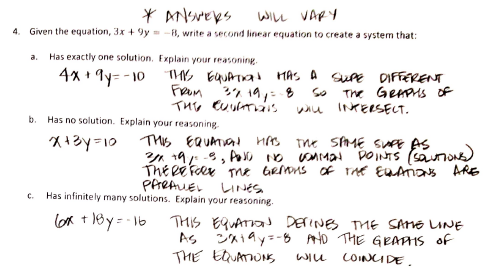 * ANSWERS WILL VARY
4. Given the equation, 3x + 9y = -8, write a second linear equation to create a system that:
a. Has exactly one solution. Explain your reasoning.
4x + 9y = -10 THIS EQUATION HAS A SLOPE DIFFERENT
FROM 3x + 9y = -8 SO THE GRAPHS OF
THE EQUATIONS WILL INTERSECT.
b. Has no solution. Explain your reasoning.
x + 3y = 10 THIS EQUATION HAS THE SAME SLOPE AS
3x + 9y = -8, AND NO COMMON POINTS (SOLUTIONS)
THEREFORE THE GRAPHS OF THE EQUATIONS ARE
PARALLEL LINES
c. Has infinitely many solutions. Explain your reasoning.
6x + 18y = -16 THIS EQUATION DEFINES THE SAME LINE
AS 3x + 9y = -8 AND THE GRAPHS OF
THE EQUATIONS WILL COINCIDE.